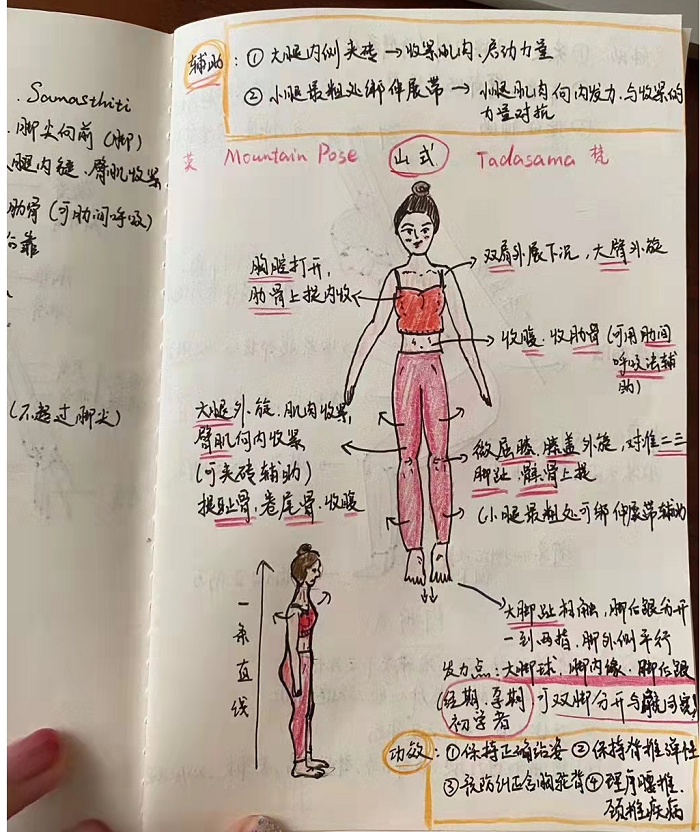 . Samasthiti
. 脚尖向前 (脚)
腿内旋、臀肌收紧
肋骨 (可肋间呼吸)
靠
(不超过脚尖)
辅助 : ① 大腿内侧夹砖 → 收紧肌肉、启动力量
② 小腿最粗处绑伸展带 → 小腿肌肉向内发力、与收紧的
力量对抗
英 Mountain Pose 山式 Tadasama 梵
胸腔打开,
肋骨上提内收
双肩外展下沉、大臂外旋
收腹、收肋骨 (可用肋间
呼吸法辅
助)
大腿外旋、肌肉收紧,
臀肌向内收紧
(可夹砖辅助)
提耻骨、卷尾骨、收腹
微屈膝、膝盖外旋, 对准二三
脚趾、髌骨上提
(小腿最粗处可绑伸展带辅助
一条直线
大脚趾相触, 脚后跟分开
一到两指, 脚外侧平行
发力点: 大脚球、脚内缘、脚后跟
(经期、孕期、
初学者
可双脚分开与髋同宽)
功效 : ① 保持正确站姿 ② 保持脊椎弹性
③ 预防纠正含胸驼背 ④ 理疗腰椎、
颈椎疾病